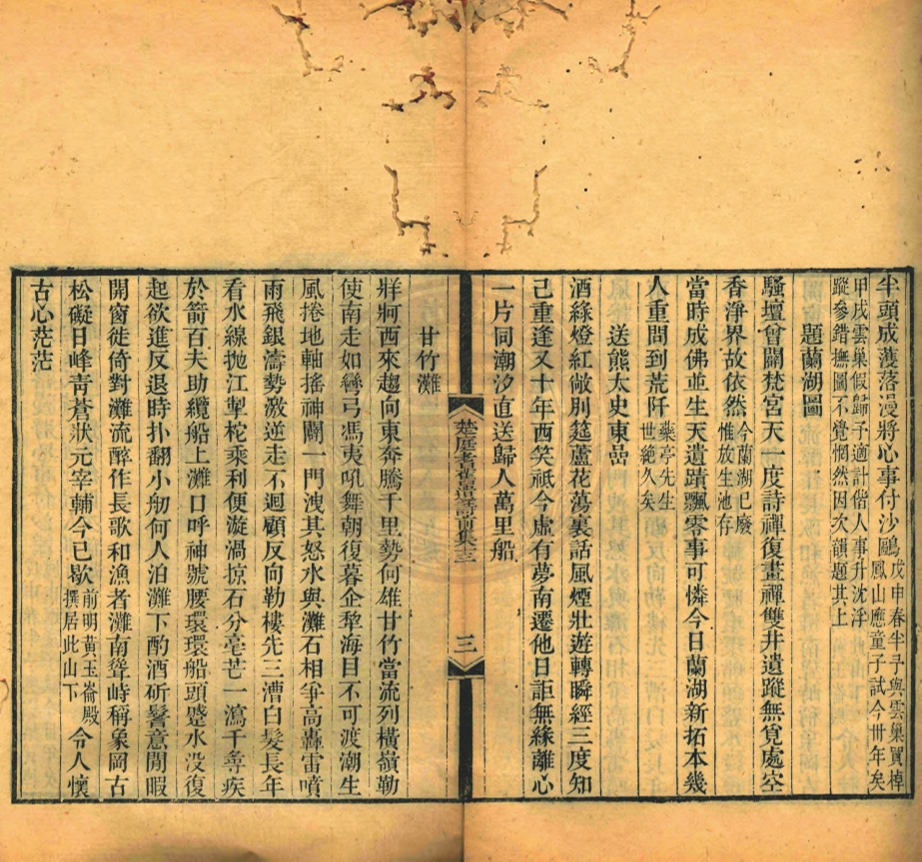 半頭成蒦落漫將心事付沙鷗戊申春半予與雲巢買棹鳳山應童子試今卅年矣
甲戌雲巢假歸予適計偕人事升沈浮蹤參錯撫圖不覺惘然因次韻題其上
題蘭湖圖
騷壇曾闢梵宮天一度詩禪復畫禪雙井遺蹤無覓處空
香淨界故依然今蘭湖已廢惟放生池存
當時成佛並生天遺蹟飄零事可憐今日蘭湖新拓本幾
人重問到荒阡藥亭先生世絶久矣
送熊太史東嵒
酒綠燈紅敞別筵蘆花蕩裏話風煙壯遊轉瞬經三度知
己重逢又十年西笑祇今虛有夢南遷他日詎無緣離心
一片同潮汐直送歸人萬里船
楚庭耆舊遺詩前集十三
三
甘竹灘
牂牁西來趨向東奔騰千里勢何雄甘竹當流列橫嶺勒
使南走如彎弓馮夷吼舞朝復暮企犂海目不可渡潮生
風捲地軸搖神闢一門洩其怒水與灘石相爭高轟雷噴
雨飛銀濤勢激逆走不迴顧反向勒樓先三漕白髮長年
看水線拋江掣柁乘利便漩渦掠石分毫芒一瀉千尋疾
於箭百夫助纜船上灘口呼神號腰環環船頭蹙水没復
起欲進反退時扑翻小舠何人泊灘下酌酒斫鱠意閒暇
開窗徒倚對灘流醉作長歌和漁者灘南聳峙稱象岡古
松礙日峰青蒼狀元宰輔今已歇前明黃玉崙殿撰居此山下令人懷
古心茫茫